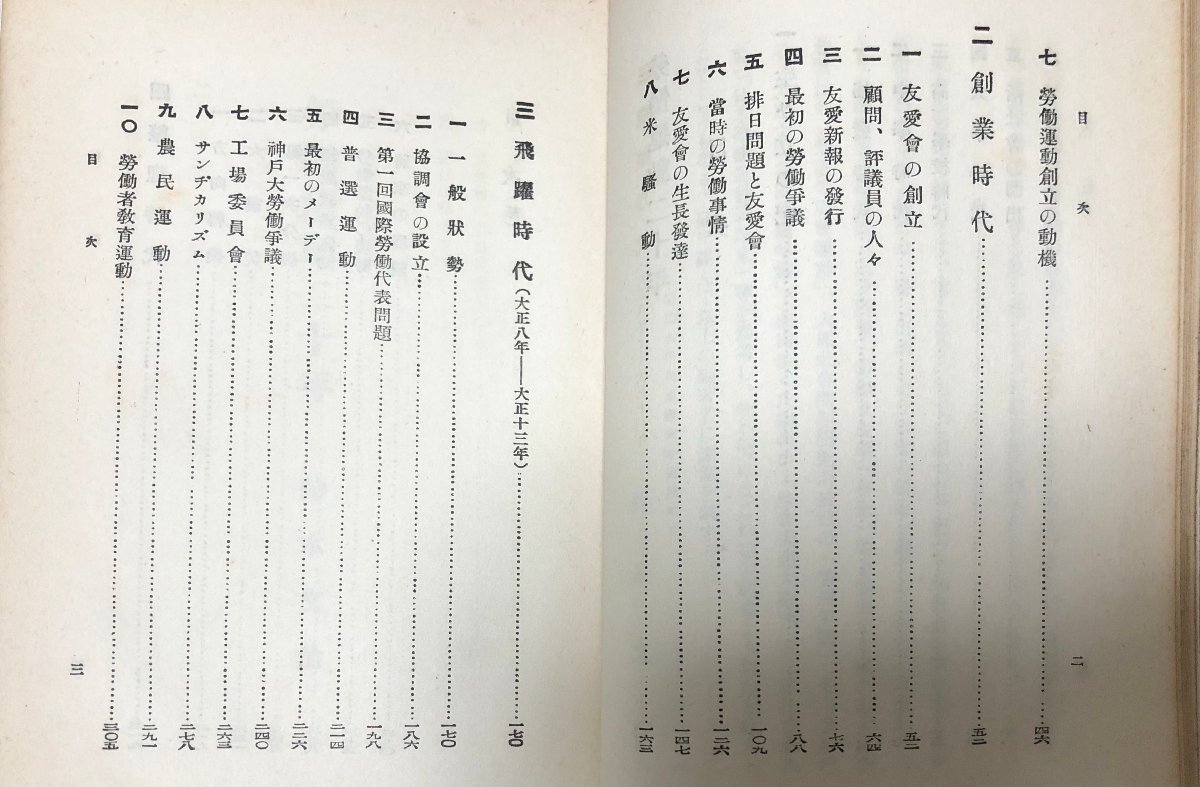 目次
七 勞働運動創立の動機……四六
二 創業時代……五二
一 友愛會の創立……五二
二 顧問、評議員の人々……六四
三 友愛新報の發行……七六
四 最初の勞働爭議……八八
五 排日問題と友愛會……一〇九
六 當時の勞働事情……一二六
七 友愛會の生長發達……一四七
八 米騷動……一六三
二
三 飛躍時代(大正八年——大正十三年)……一七〇
一 一般狀勢……一七〇
二 協調會の設立……一八六
三 第一回國際勞働代表問題……一九八
四 普選運動……二一四
五 最初のメーデー……二二六
六 神戶大勞働爭議……二四〇
七 工場委員會……二六三
八 サンヂカリズム……二七八
九 農民運動……二九一
一〇 勞働者敎育運動……三〇五
目次
三